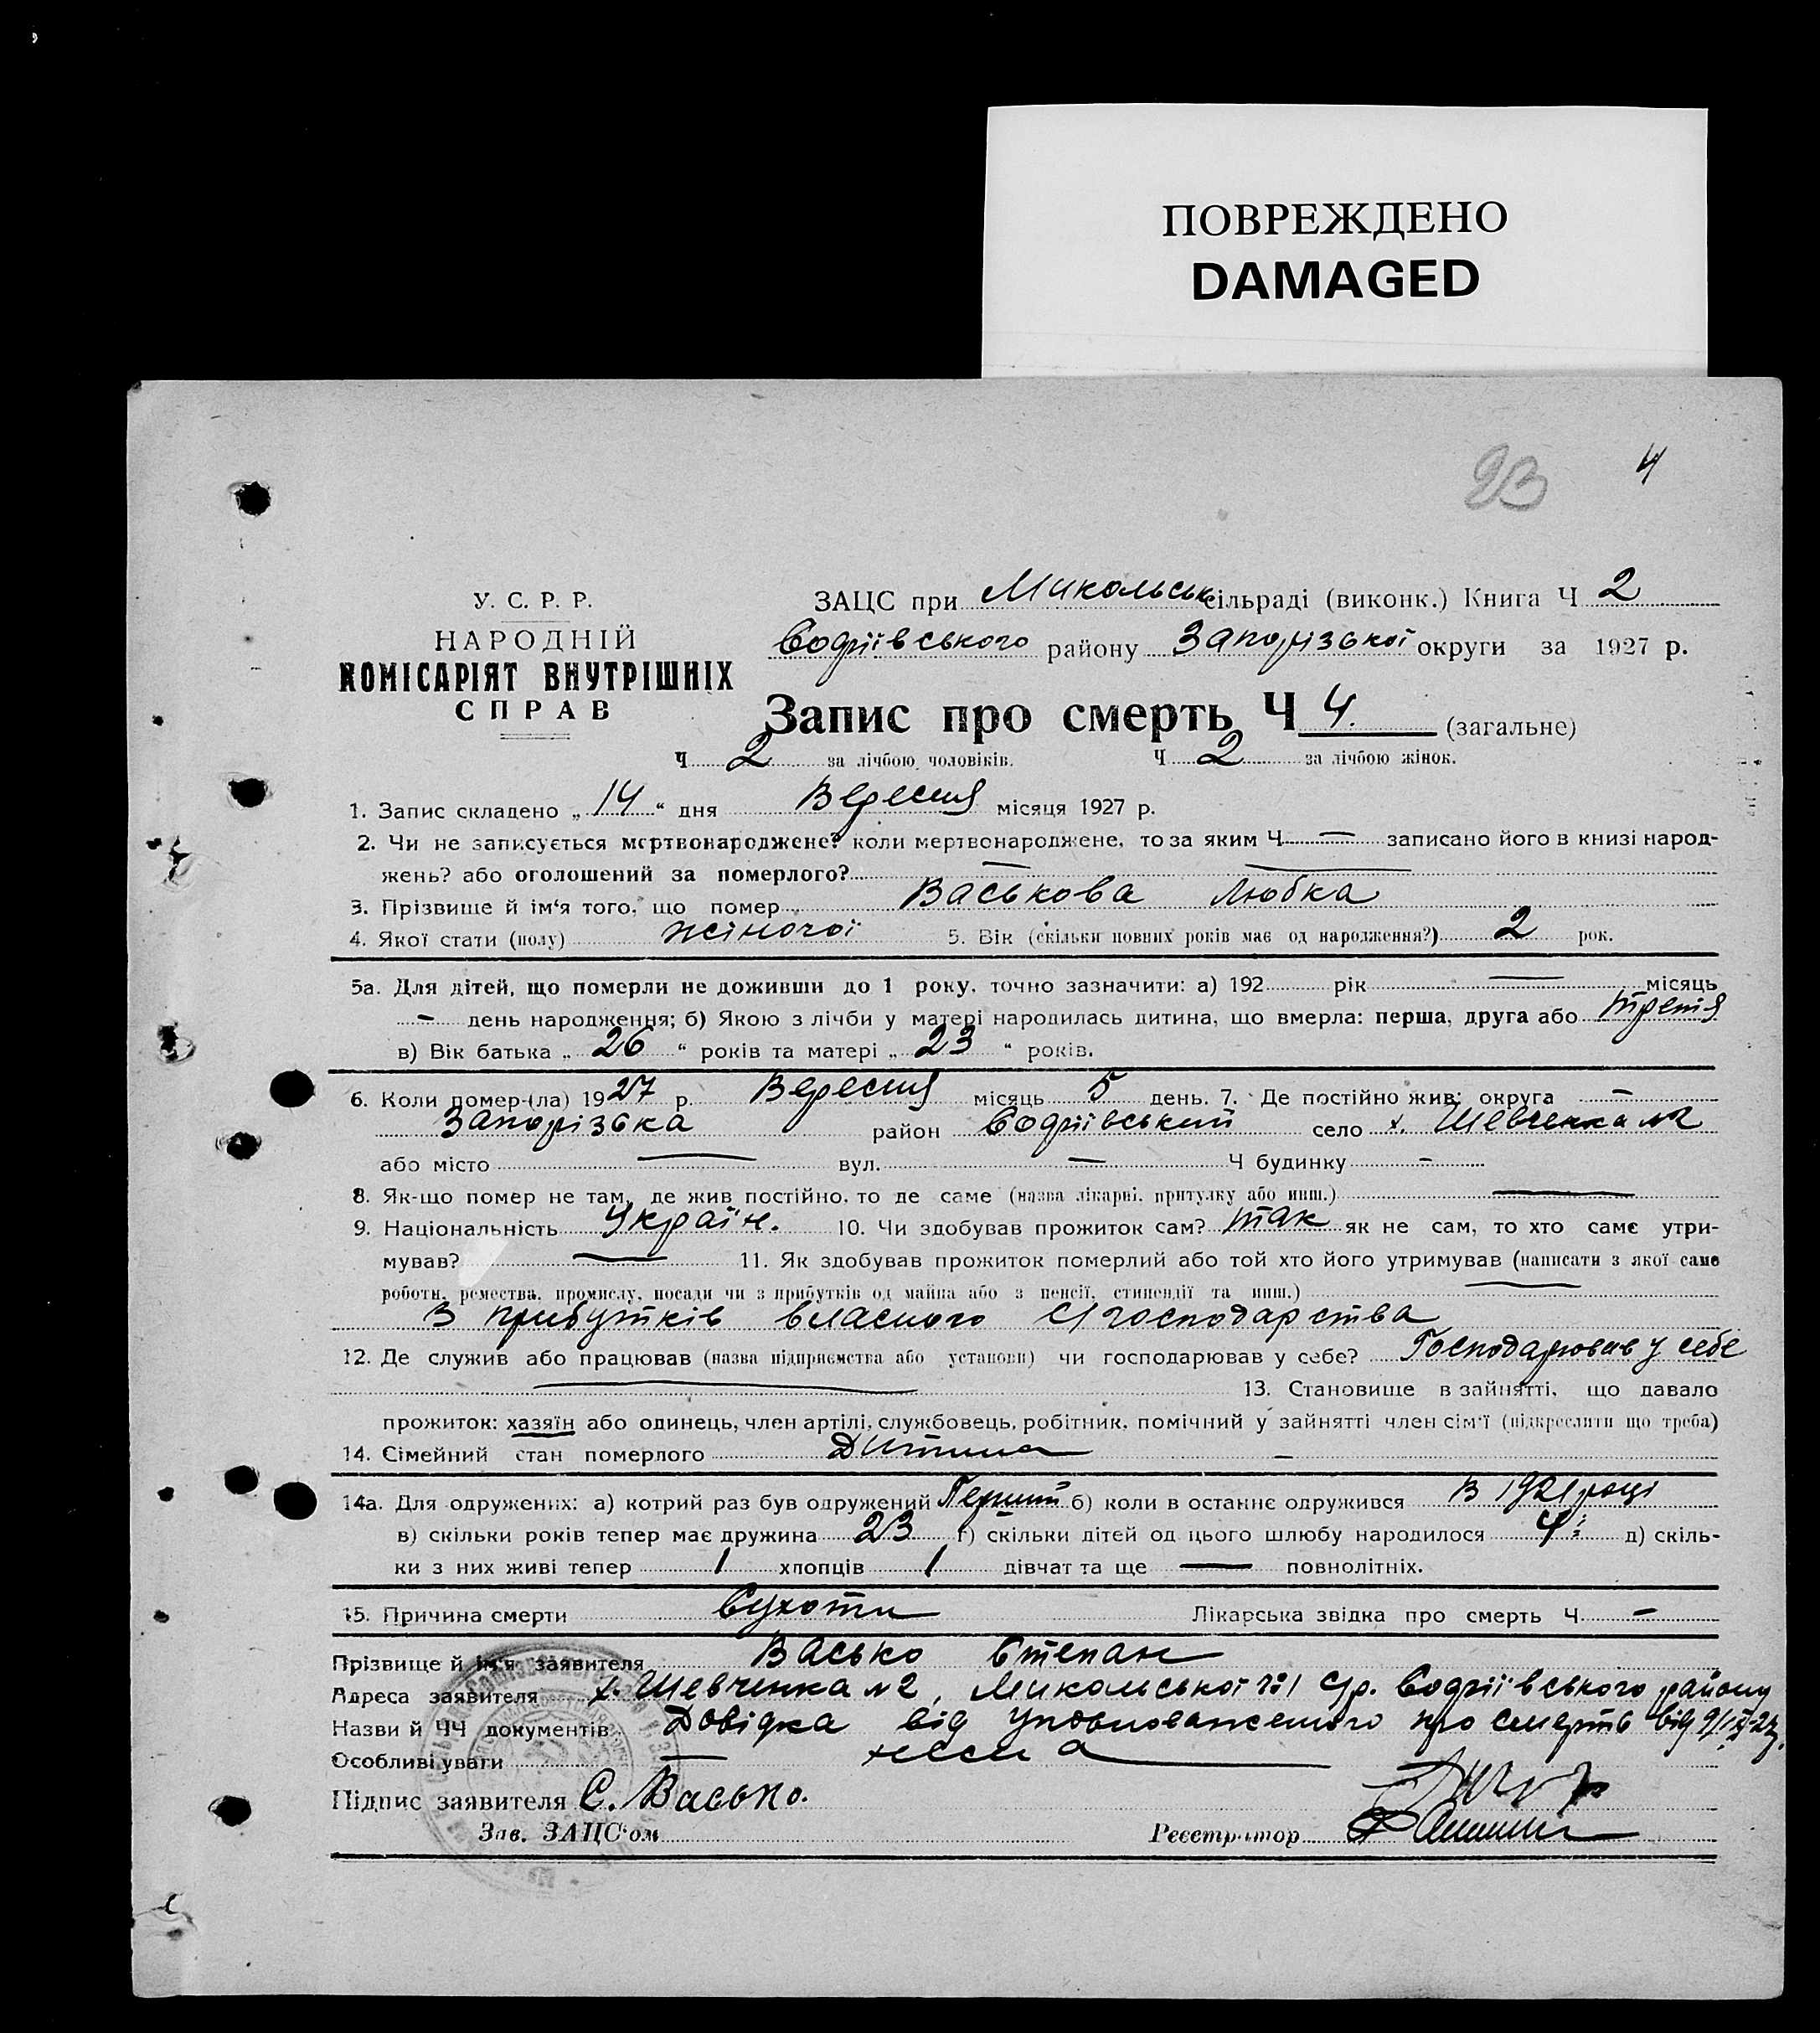 ПОВРЕЖДЕНО
DAMAGED
23 4
У. С. Р. Р.
НАРОДНІЙ
КОМІСАРІЯТ ВНУТРІШНІХ
СПРАВ
ЗАЦС при Микольськ сільраді (виконк.) Книга Ч 2
Софіївського району Запорізької округи за 1927 р.
Запис про смерть Ч 4. (загальне)
Ч 2 за лічбою чоловіків. Ч 2 за лічбою жінок.
1. Запис складено „ 14 “ дня Вересня місяця 1927 р.
2. Чи не записується мертвонароджене? коли мертвонароджене, то за яким Ч — записано його в книзі народ-
жень? або оголошений за померлого? — —
3. Прізвище й ім‘я того, що помер Васькова Любка
4. Якої стати (полу) жіночої 5. Вік (скільки повних років має од народження?) 2 рок.
5а. Для дітей, що померли не доживши до 1 року, точно зазначити: а) 192 рік — місяць
— день народження; б) Якою з лічби у матері народилась дитина, що вмерла: перша, друга або третя
в) Вік батька „ 26 “ років та матері „ 23 “ років.
6. Коли помер-(ла) 1927 р. Вересня місяць 5 день. 7. Де постійно жив: округа —
Запорізька район Софіївський село х. Шевченка №2
або місто — вул. — Ч будинку -
8. Як-що помер не там, де жив постійно, то де саме (назва лікарні, притулку або инш.) —
9. Національність Україн. 10. Чи здобував прожиток сам? так як не сам, то хто саме утри-
мував? — 11. Як здобував прожиток померлий або той хто його утримував (написати з якої саме
роботи, ремества, промислу, посади чи з прибутків од майна або з пенсії, стипендії та инш.) —
З прибутків власного с/господарства
12. Де служив або працював (назва підприємства або установи) чи господарював у себе? Господарював у себе
— 13. Становище в зайнятті, що давало
прожиток: хазяїн або одинець, член артілі, службовець, робітник, помічний у зайнятті член сім‘ї (підкреслити що треба)
14. Сімейний стан померлого Дитина —
14а. Для одружених: а) котрий раз був одружений Перший б) коли в останнє одружився в 1921 році
в) скільки років тепер має дружина 23 г) скільки дітей од цього шлюбу народилося 4 д) скіль-
ки з них живі тепер 1 хлопців 1 дівчат та ще — повнолітніх.
15. Причина смерти Сухоти Лікарська звідка про смерть Ч —
Прізвище й ім‘я заявителя Васько Степан
Адреса заявителя х. Шевченка №2, Микольської с/р. Софіївського району
Назви й ЧЧ документів Довідка від уповноваженого про смерть від 9/IX-27
Особливі уваги — нема
Підпис заявителя С. Васько.
Зав. ЗАЦС‘ом
Реєстратор